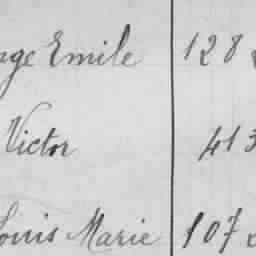 Emile 128
Victor 413
Louis Marie 107